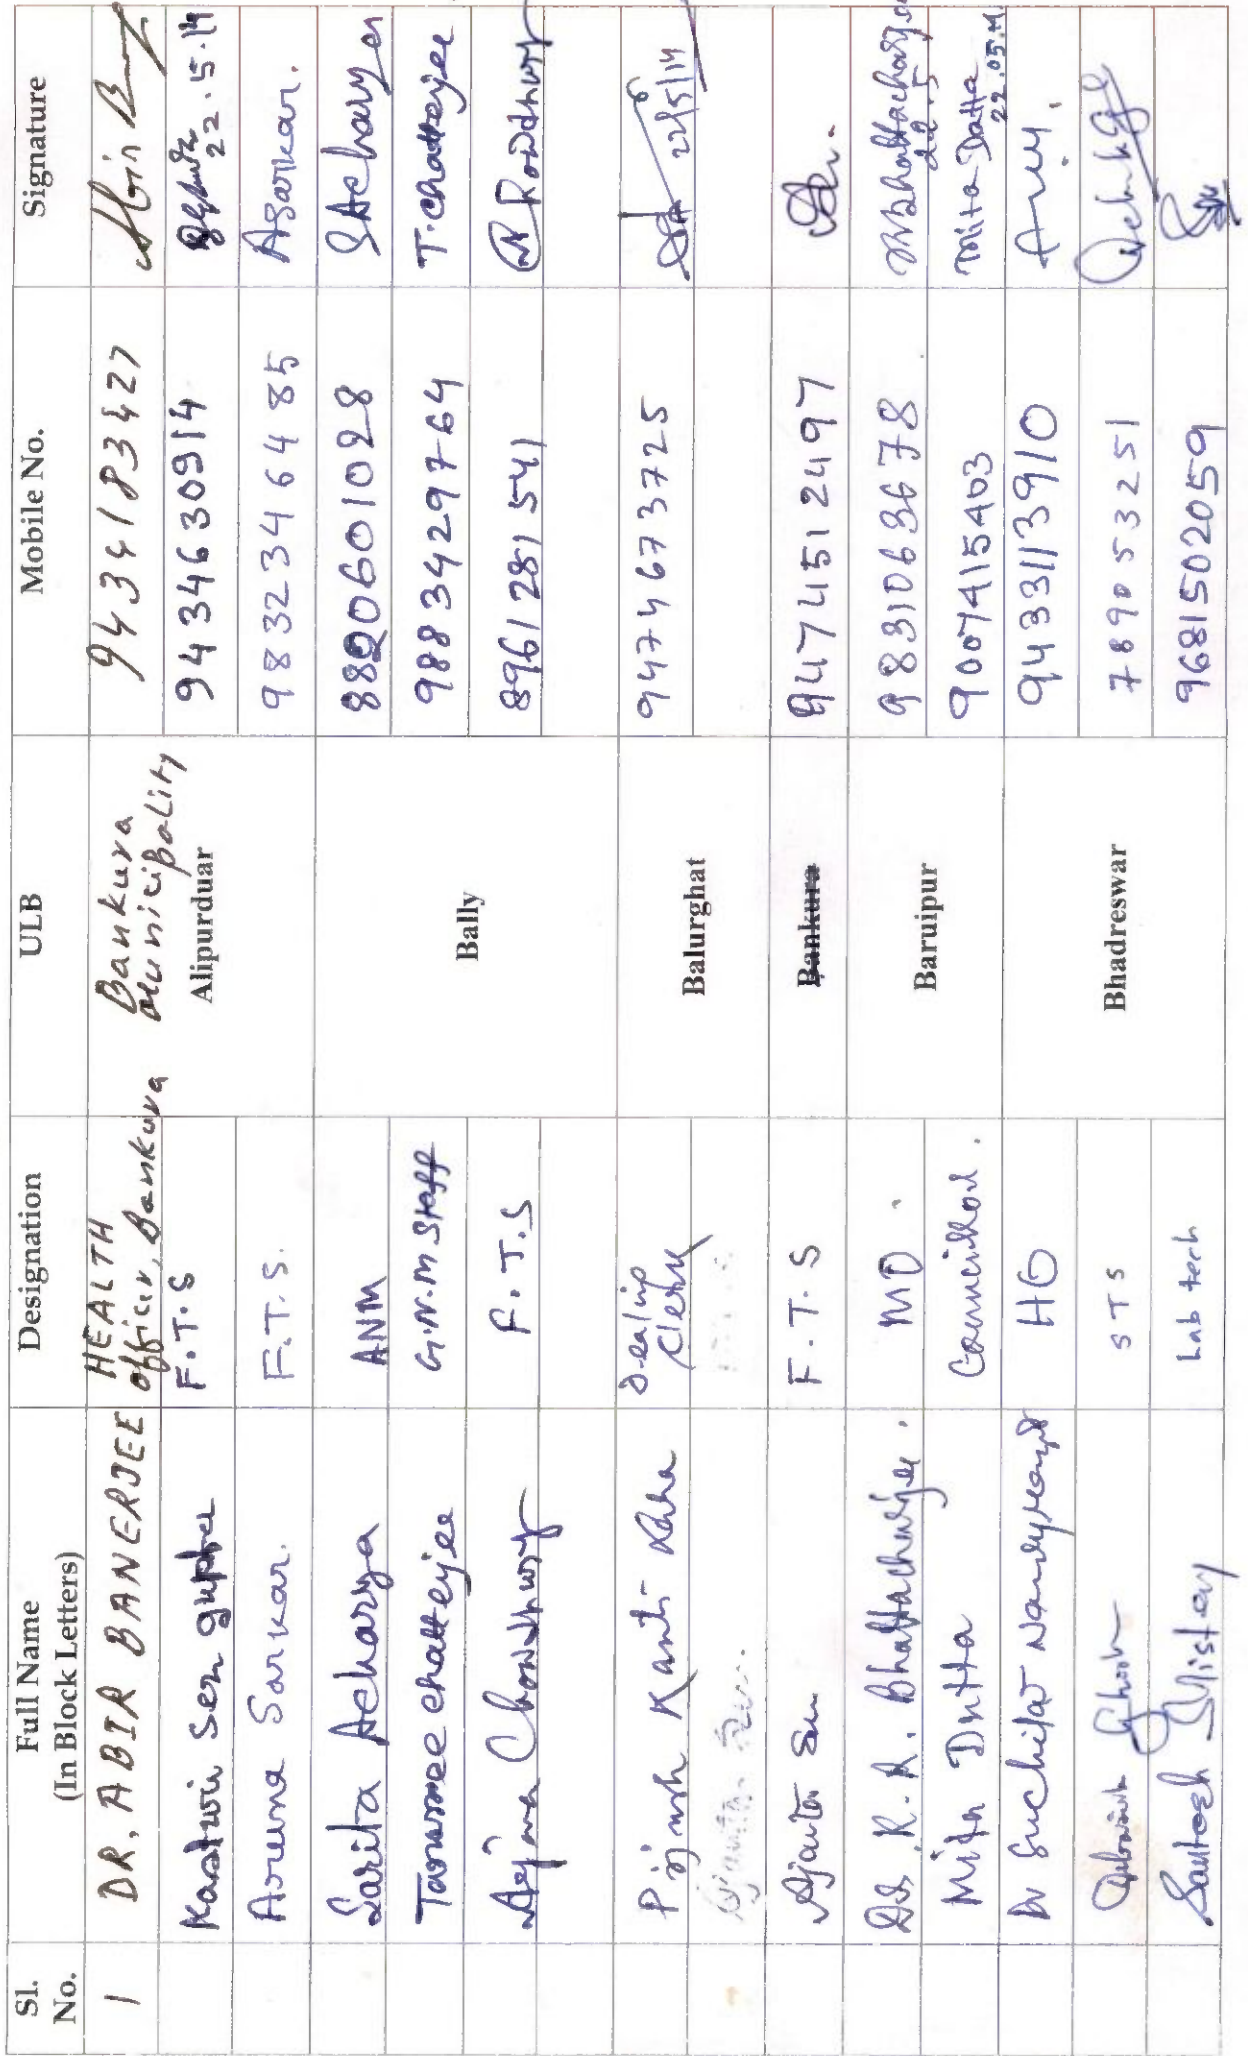 Sl. No. Full Name (In Block Letters) Designation ULB Mobile No. Signature
1 DR. ABIR BANERJEE HEALTH officer, Bankura Bankura Municipality 9434183427
Kasturi Sen gupta F.T.S Alipurduar 9434630914 22.5.14
Aruna Sarkar. F.T.S. 9832346485 ASarkar.
Sarita Acharya ANM Bally 8820601028 SAcharya
Tanusree Chatterjee G.N.M Staff 9883429764 T. Chatterjee
Anjana Chowdhury F.T.S 8961281541
Pijush Kanti Dealing Clerk Balurghat 9474673725 22/5/14
Ajanta Sen
Ajanta Sen F.T.S Bankura 9474512497
Dr. R.R. Bhattacharjee. MD. Baruipur 9831063678 22.5
Mita Dutta Councillor. 9007415403 Mita Datta 22.05.14
Dr Suchitar HO Bhadreswar 9433113910
Ghosh STS 789053251
Santosh Mistry Lab tech 9681502059